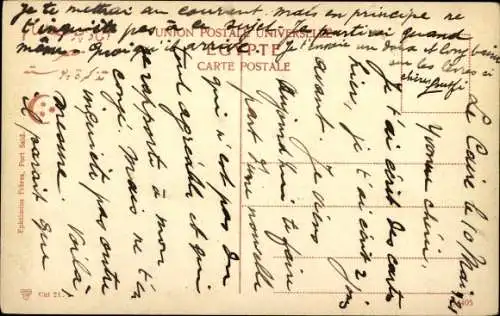 Le Caire le 10 Mai 1921
Yvonne chérie,
Je t'ai écrit des cartes
hier, je t'ai écrit 2 fois
avant. Je viens
aujourd'hui te faire
part d'une nouvelle
qui n'est pas du
tout agréable et qui
se rapporte à mon
congé. Mais ne t'en
inquiète pas outre
mesure. Voilà,
il paraît que
je te mettrai au courant. mais en principe ne
t'inquiète pas à ce sujet. Je partirai quand
même - quoiqu'il arrive. Je t'envoie un doux et long baiser
sur les lèvres
UNION POSTALE UNIVERSELLE
EGYPTE
CARTE POSTALE
Ephtimios Frères, Port Said.
Cat 21.